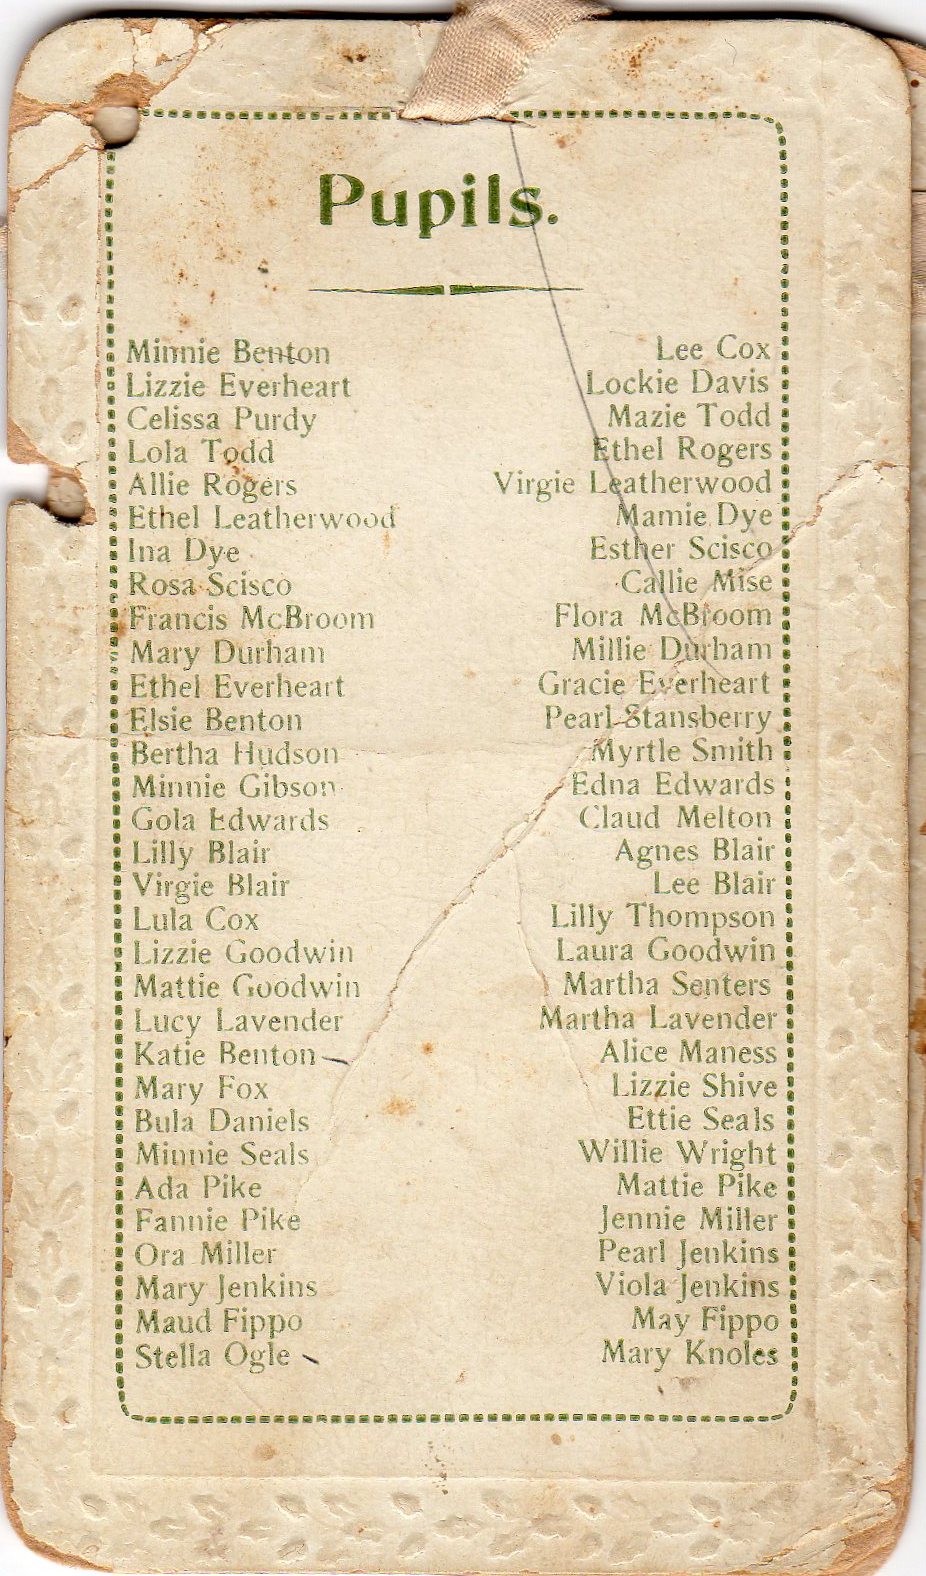 Pupils.
Minnie Benton
Lizzie Everheart
Celissa Purdy
Lola Todd
Allie Rogers
Ethel Leatherwood
Ina Dye
Rosa Scisco
Francis McBroom
Mary Durham
Ethel Everheart
Elsie Benton
Bertha Hudson
Minnie Gibson
Gola Edwards
Lilly Blair
Virgie Blair
Lula Cox
Lizzie Goodwin
Mattie Goodwin
Lucy Lavender
Katie Benton
Mary Fox
Bula Daniels
Minnie Seals
Ada Pike
Fannie Pike
Ora Miller
Mary Jenkins
Maud Fippo
Stella Ogle
Lee Cox
Lockie Davis
Mazie Todd
Ethel Rogers
Virgie Leatherwood
Mamie Dye
Esther Scisco
Callie Mise
Flora McBroom
Millie Durham
Gracie Everheart
Pearl Stansberry
Myrtle Smith
Edna Edwards
Claud Melton
Agnes Blair
Lee Blair
Lilly Thompson
Laura Goodwin
Martha Senters
Martha Lavender
Alice Maness
Lizzie Shive
Ettie Seals
Willie Wright
Mattie Pike
Jennie Miller
Pearl Jenkins
Viola Jenkins
May Fippo
Mary Knoles